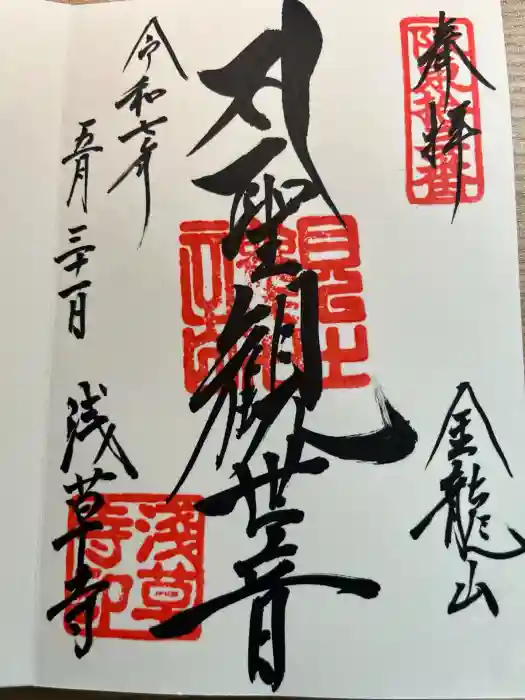 奉拝
金龍山
聖観世音
令和七年
五月三十一日
浅草寺
浅草寺印